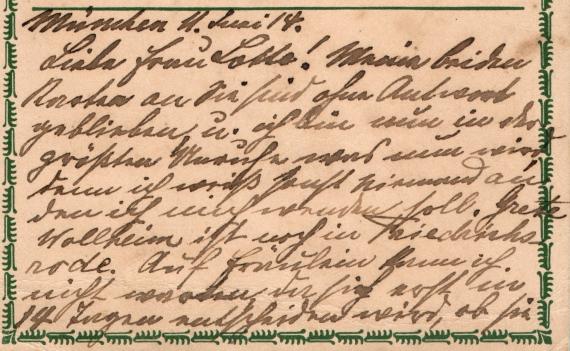 München 11. Juni 14.
Liebe Frau Lotte! Meine beiden
Karten an Sie sind ohne Antwort
geblieben, u. ich bin nun in der
größten Unruhe was nun wird
denn ich weiß sonst niemand an
den ich mich wenden soll. Grete
Wollheim ist noch in Friedrichs
rode. Auf Fräulein kann ich
nicht warten, da sie erst in
14 Tagen entscheiden wird, ob sie